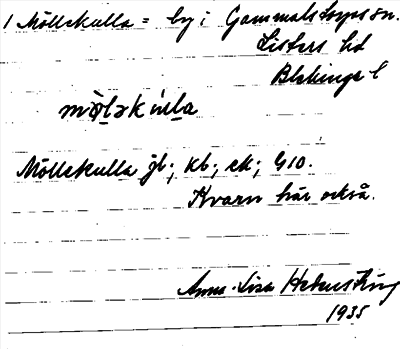 1 Möllekulla = by i Gammalstorps sn.
Listers hd
Blekinge l
Möllekulla jb; kb; ek; G10.
Kvarn här också.
Anna-Lisa
1935